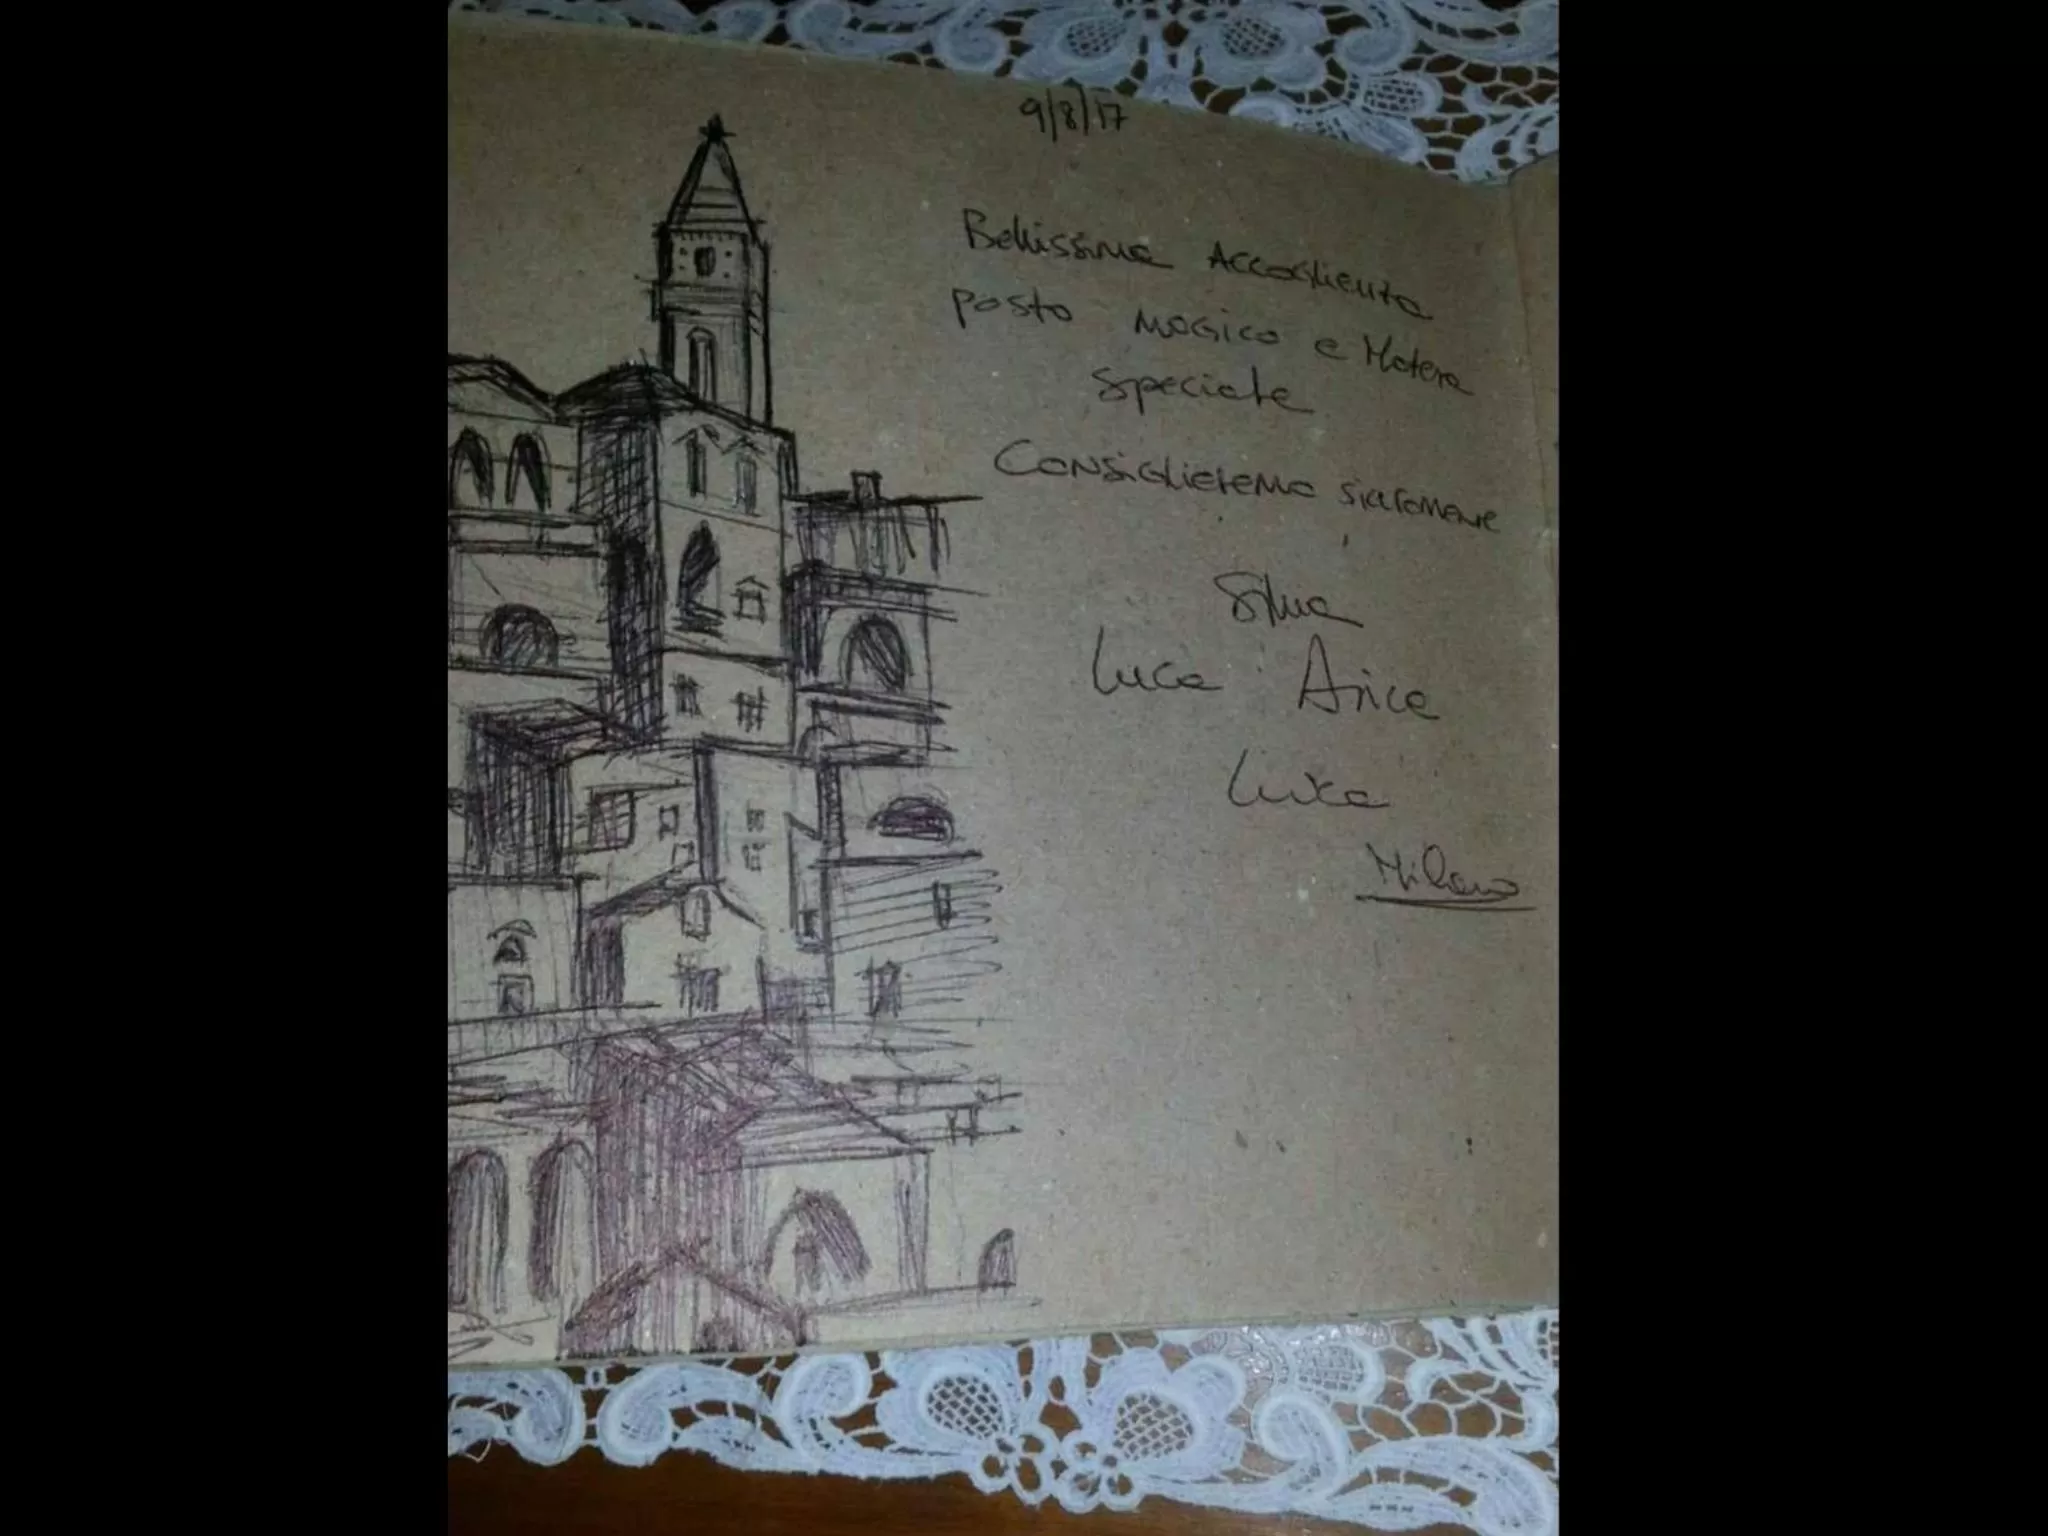 9/8/17
Bellissima Accoglienza
posto magico e Matera
speciale
Consiglieremo sicuramente
Silvia
Luca Arice
Luca
Milano